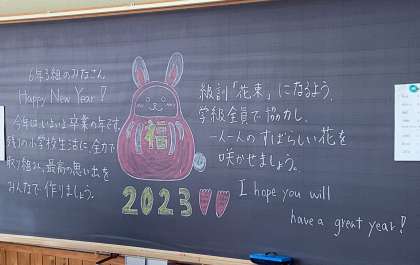 6年3組のみなさん
Happy New Year!
今年はいよいよ卒業の年です。
残りの小学校生活に、全力で
取り組み、最高の思い出を
みんなで作りましょう。
福
2023
級訓「花束」になるよう、
学級全員で協力し、
一人一人のすばらしい花を
咲かせましょう。
I hope you will
have a great year!